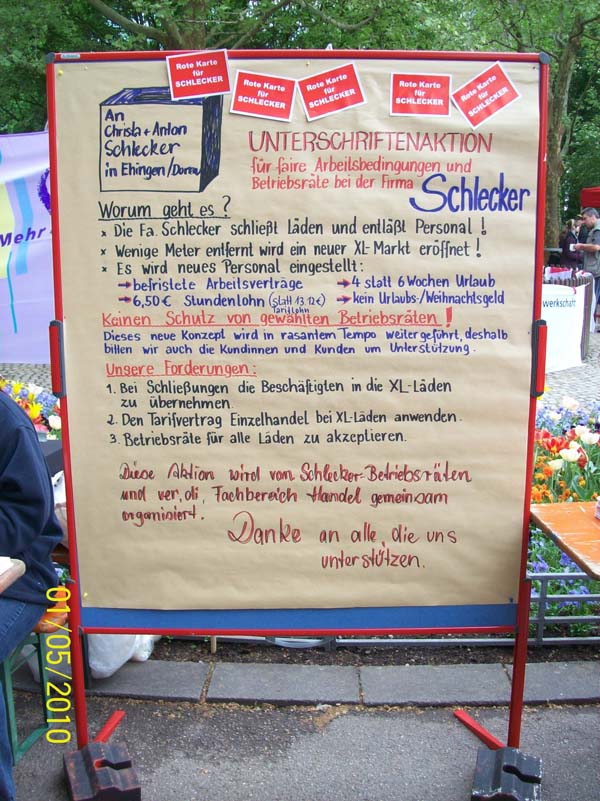 Rote Karte
für
SCHLECKER
Rote Karte
für
SCHLECKER
Rote Karte
für
SCHLECKER
Rote Karte
für
SCHLECKER
Rote Karte
für
SCHLECKER
An
Christa + Anton
Schlecker
in Ehingen/Donau
UNTERSCHRIFTENAKTION
für faire Arbeitsbedingungen und
Betriebsräte bei der Firma Schlecker
Worum geht es?
x Die Fa. Schlecker schließt Läden und entläßt Personal!
x Wenige Meter entfernt wird ein neuer XL-Markt eröffnet!
x Es wird neues Personal eingestellt:
→ befristete Arbeitsverträge → 4 statt 6 Wochen Urlaub
→ 6,50 € Stundenlohn (statt 13.12 € Tariflohn) → kein Urlaubs-/Weihnachtsgeld
Keinen Schutz von gewählten Betriebsräten!
Dieses neue Konzept wird in rasantem Tempo weitergeführt, deshalb
bitten wir auch die Kundinnen und Kunden um Unterstützung.
Unsere Forderungen:
1. Bei Schließungen die Beschäftigten in die XL-Läden
zu übernehmen.
2. Den Tarifvertrag Einzelhandel bei XL-Läden anwenden.
3. Betriebsräte für alle Läden zu akzeptieren.
Diese Aktion wird von Schlecker-Betriebsräten
und ver.di, Fachbereich Handel gemeinsam
organisiert.
Danke an alle, die uns
unterstützen.
Mehr
werkschaft
01/05/2010